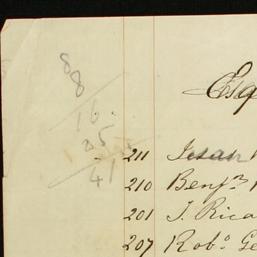 88
16
25
41
Esq
211
210 Benjⁿ
201 J. Rica
207 Robᵒ Ge